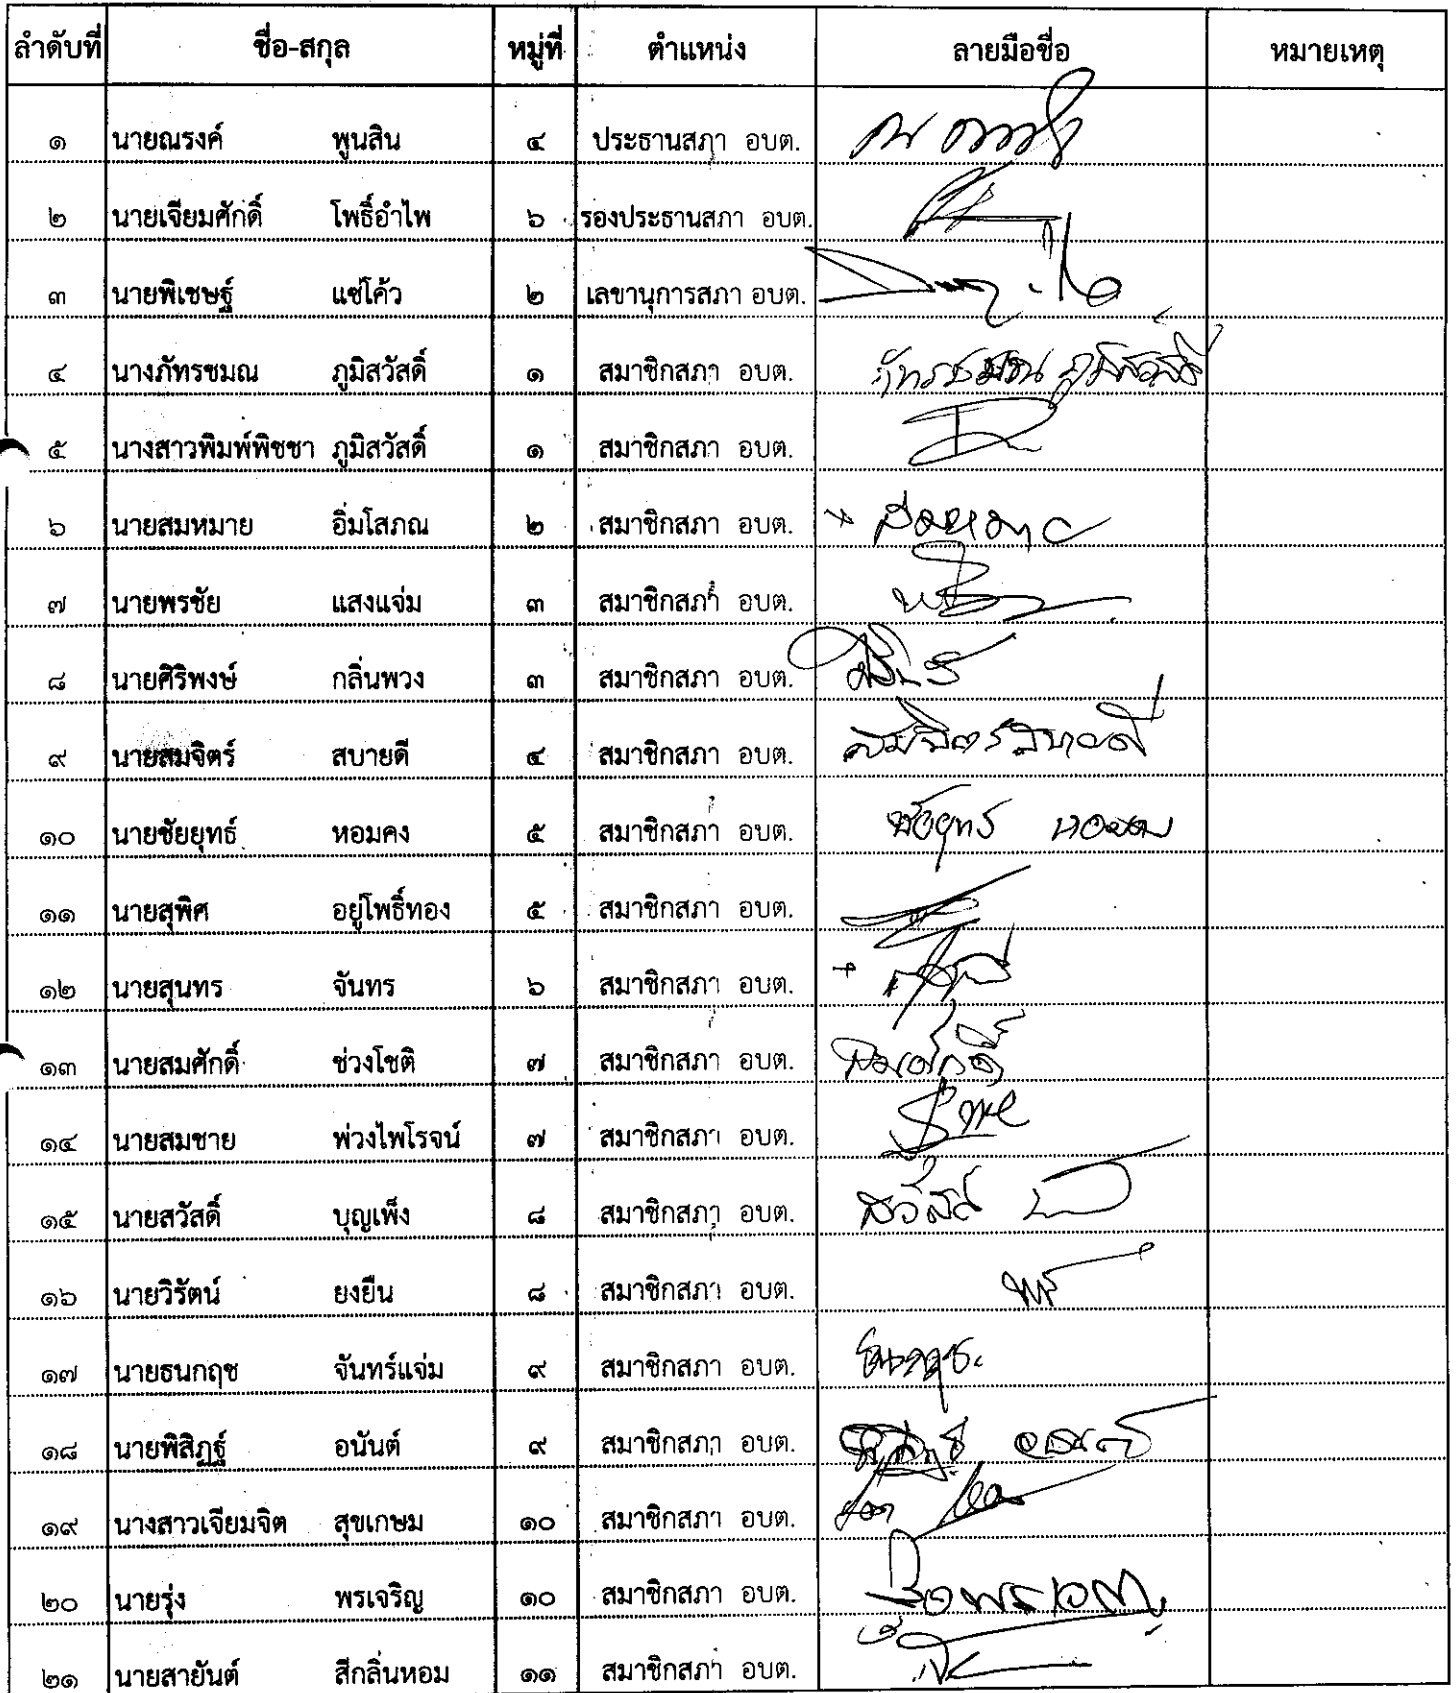 ลำดับที่ ชื่อ-สกุล หมู่ที่ ตำแหน่ง ลายมือชื่อ หมายเหตุ
๑ นายณรงค์ พูนสิน ๔ ประธานสภา อบต.
๒ นายเจียมศักดิ์ โพธิ์อำไพ ๖ รองประธานสภา อบต.
๓ นายพิเชษฐ์ แซ่โค้ว ๒ เลขานุการสภา อบต.
๔ นางภัทรชมณ ภูมิสวัสดิ์ ๑ สมาชิกสภา อบต. ภัทรชมณ ภูมิสวัสดิ์
๕ นางสาวพิมพ์พิชชา ภูมิสวัสดิ์ ๑ สมาชิกสภา อบต.
๖ นายสมหมาย อิ่มโสภณ ๒ สมาชิกสภา อบต. สมหมาย
๗ นายพรชัย แสงแจ่ม ๓ สมาชิกสภา อบต.
๘ นายศิริพงษ์ กลิ่นพวง ๓ สมาชิกสภา อบต.
๙ นายสมจิตร์ สบายดี ๔ สมาชิกสภา อบต. สมจิตร์ สบายดี
๑๐ นายชัยยุทธ์ หอมคง ๕ สมาชิกสภา อบต.
๑๑ นายสุพิศ อยู่โพธิ์ทอง ๕ สมาชิกสภา อบต.
๑๒ นายสุนทร จันทร ๖ สมาชิกสภา อบต.
๑๓ นายสมศักดิ์ ช่วงโชติ ๗ สมาชิกสภา อบต. สมศักดิ์
๑๔ นายสมชาย พ่วงไพโรจน์ ๗ สมาชิกสภา อบต.
๑๕ นายสวัสดิ์ บุญเพ็ง ๘ สมาชิกสภา อบต. สวัสดิ์
๑๖ นายวิรัตน์ ยงยืน ๘ สมาชิกสภา อบต.
๑๗ นายธนกฤช จันทร์แจ่ม ๙ สมาชิกสภา อบต.
๑๘ นายพิสิฏฐ์ อนันต์ ๙ สมาชิกสภา อบต.
๑๙ นางสาวเจียมจิต สุขเกษม ๑๐ สมาชิกสภา อบต.
๒๐ นายรุ่ง พรเจริญ ๑๐ สมาชิกสภา อบต.
๒๑ นายสายันต์ สีกลิ่นหอม ๑๑ สมาชิกสภา อบต.